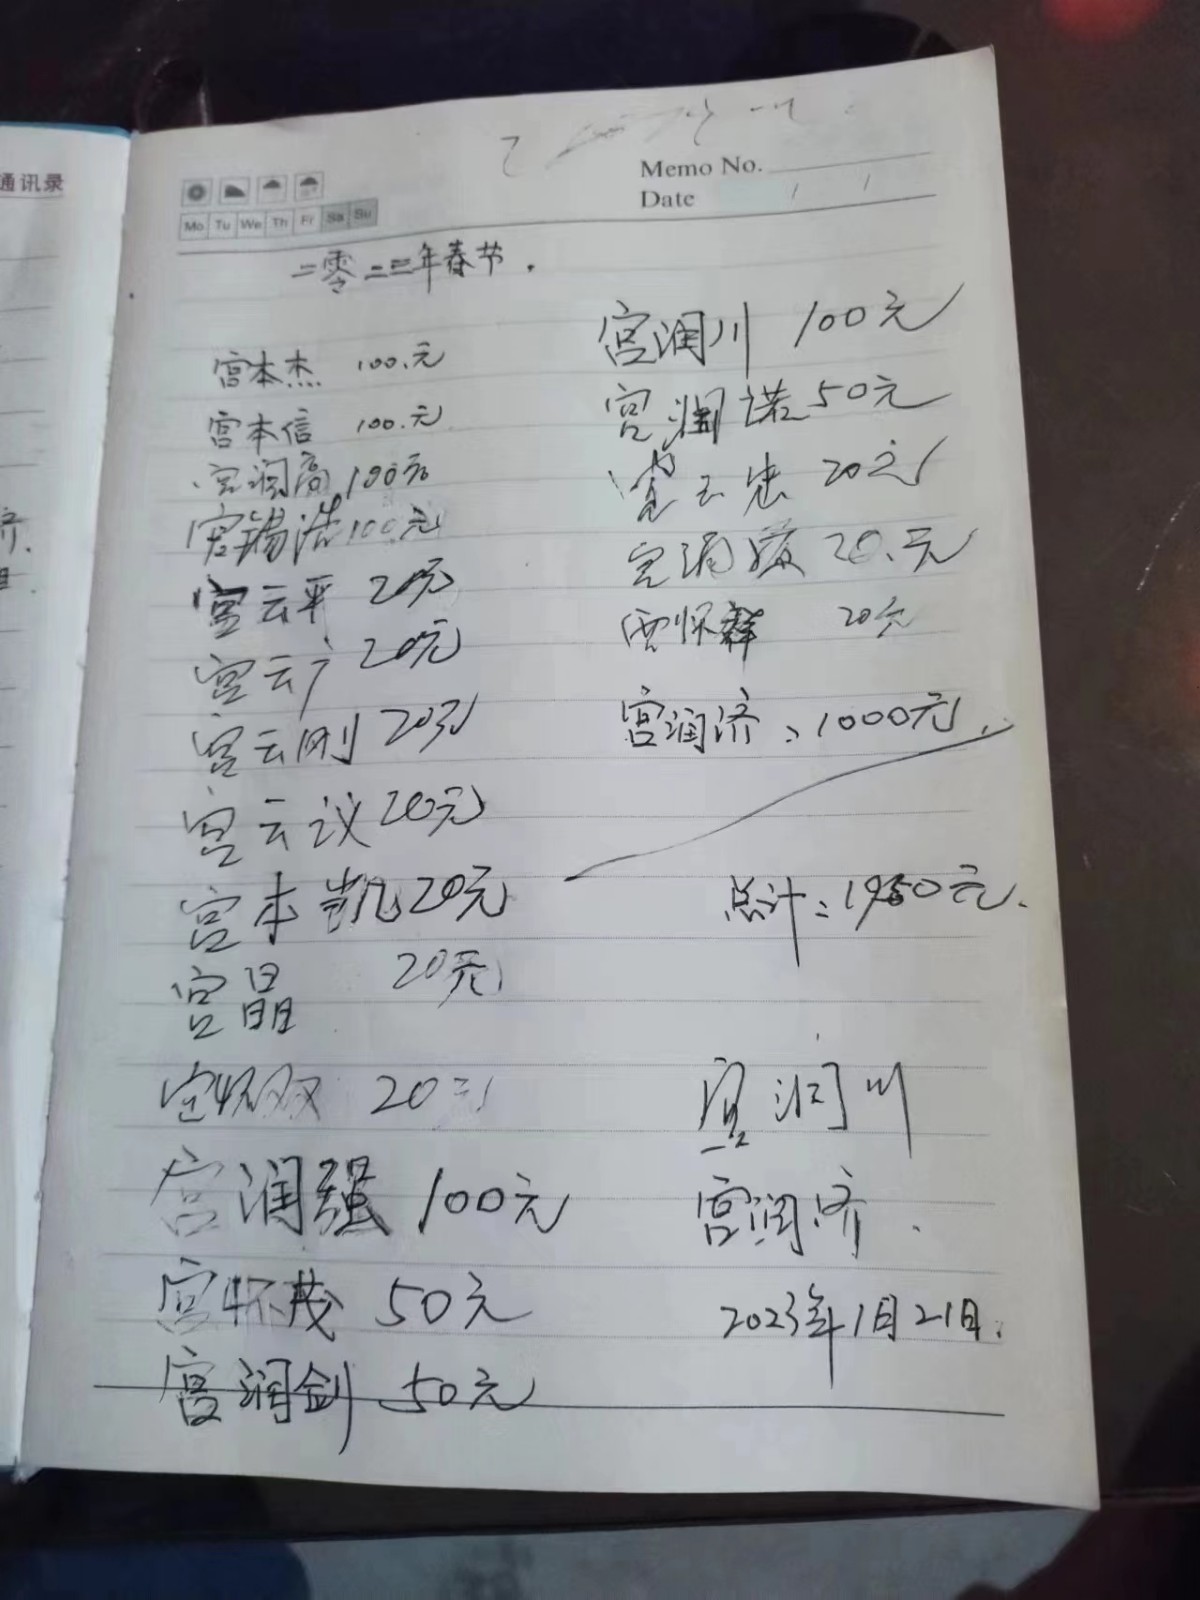 通讯录
Memo No.
Date / /
Mo Tu We Th Fr Sa Su
二零二三年春节.
宫本杰 100.元
宫本信 100.元
宫润高 100元
宫锡浩 100元
宫云平 20元
宫云广 20元
宫云刚 20元
宫云议 20元
宫本凯 20元
宫晶 20元
宫怀双 20元
宫润强 100元
宫怀茂 50元
宫润剑 50元
宫润川 100元
宫润诺 50元
宫云忠 20元
宫润 20.元
宫怀群 20元
宫润济:1000元.
总计:1950元.
宫润川
宫润济.
2023年1月21日.